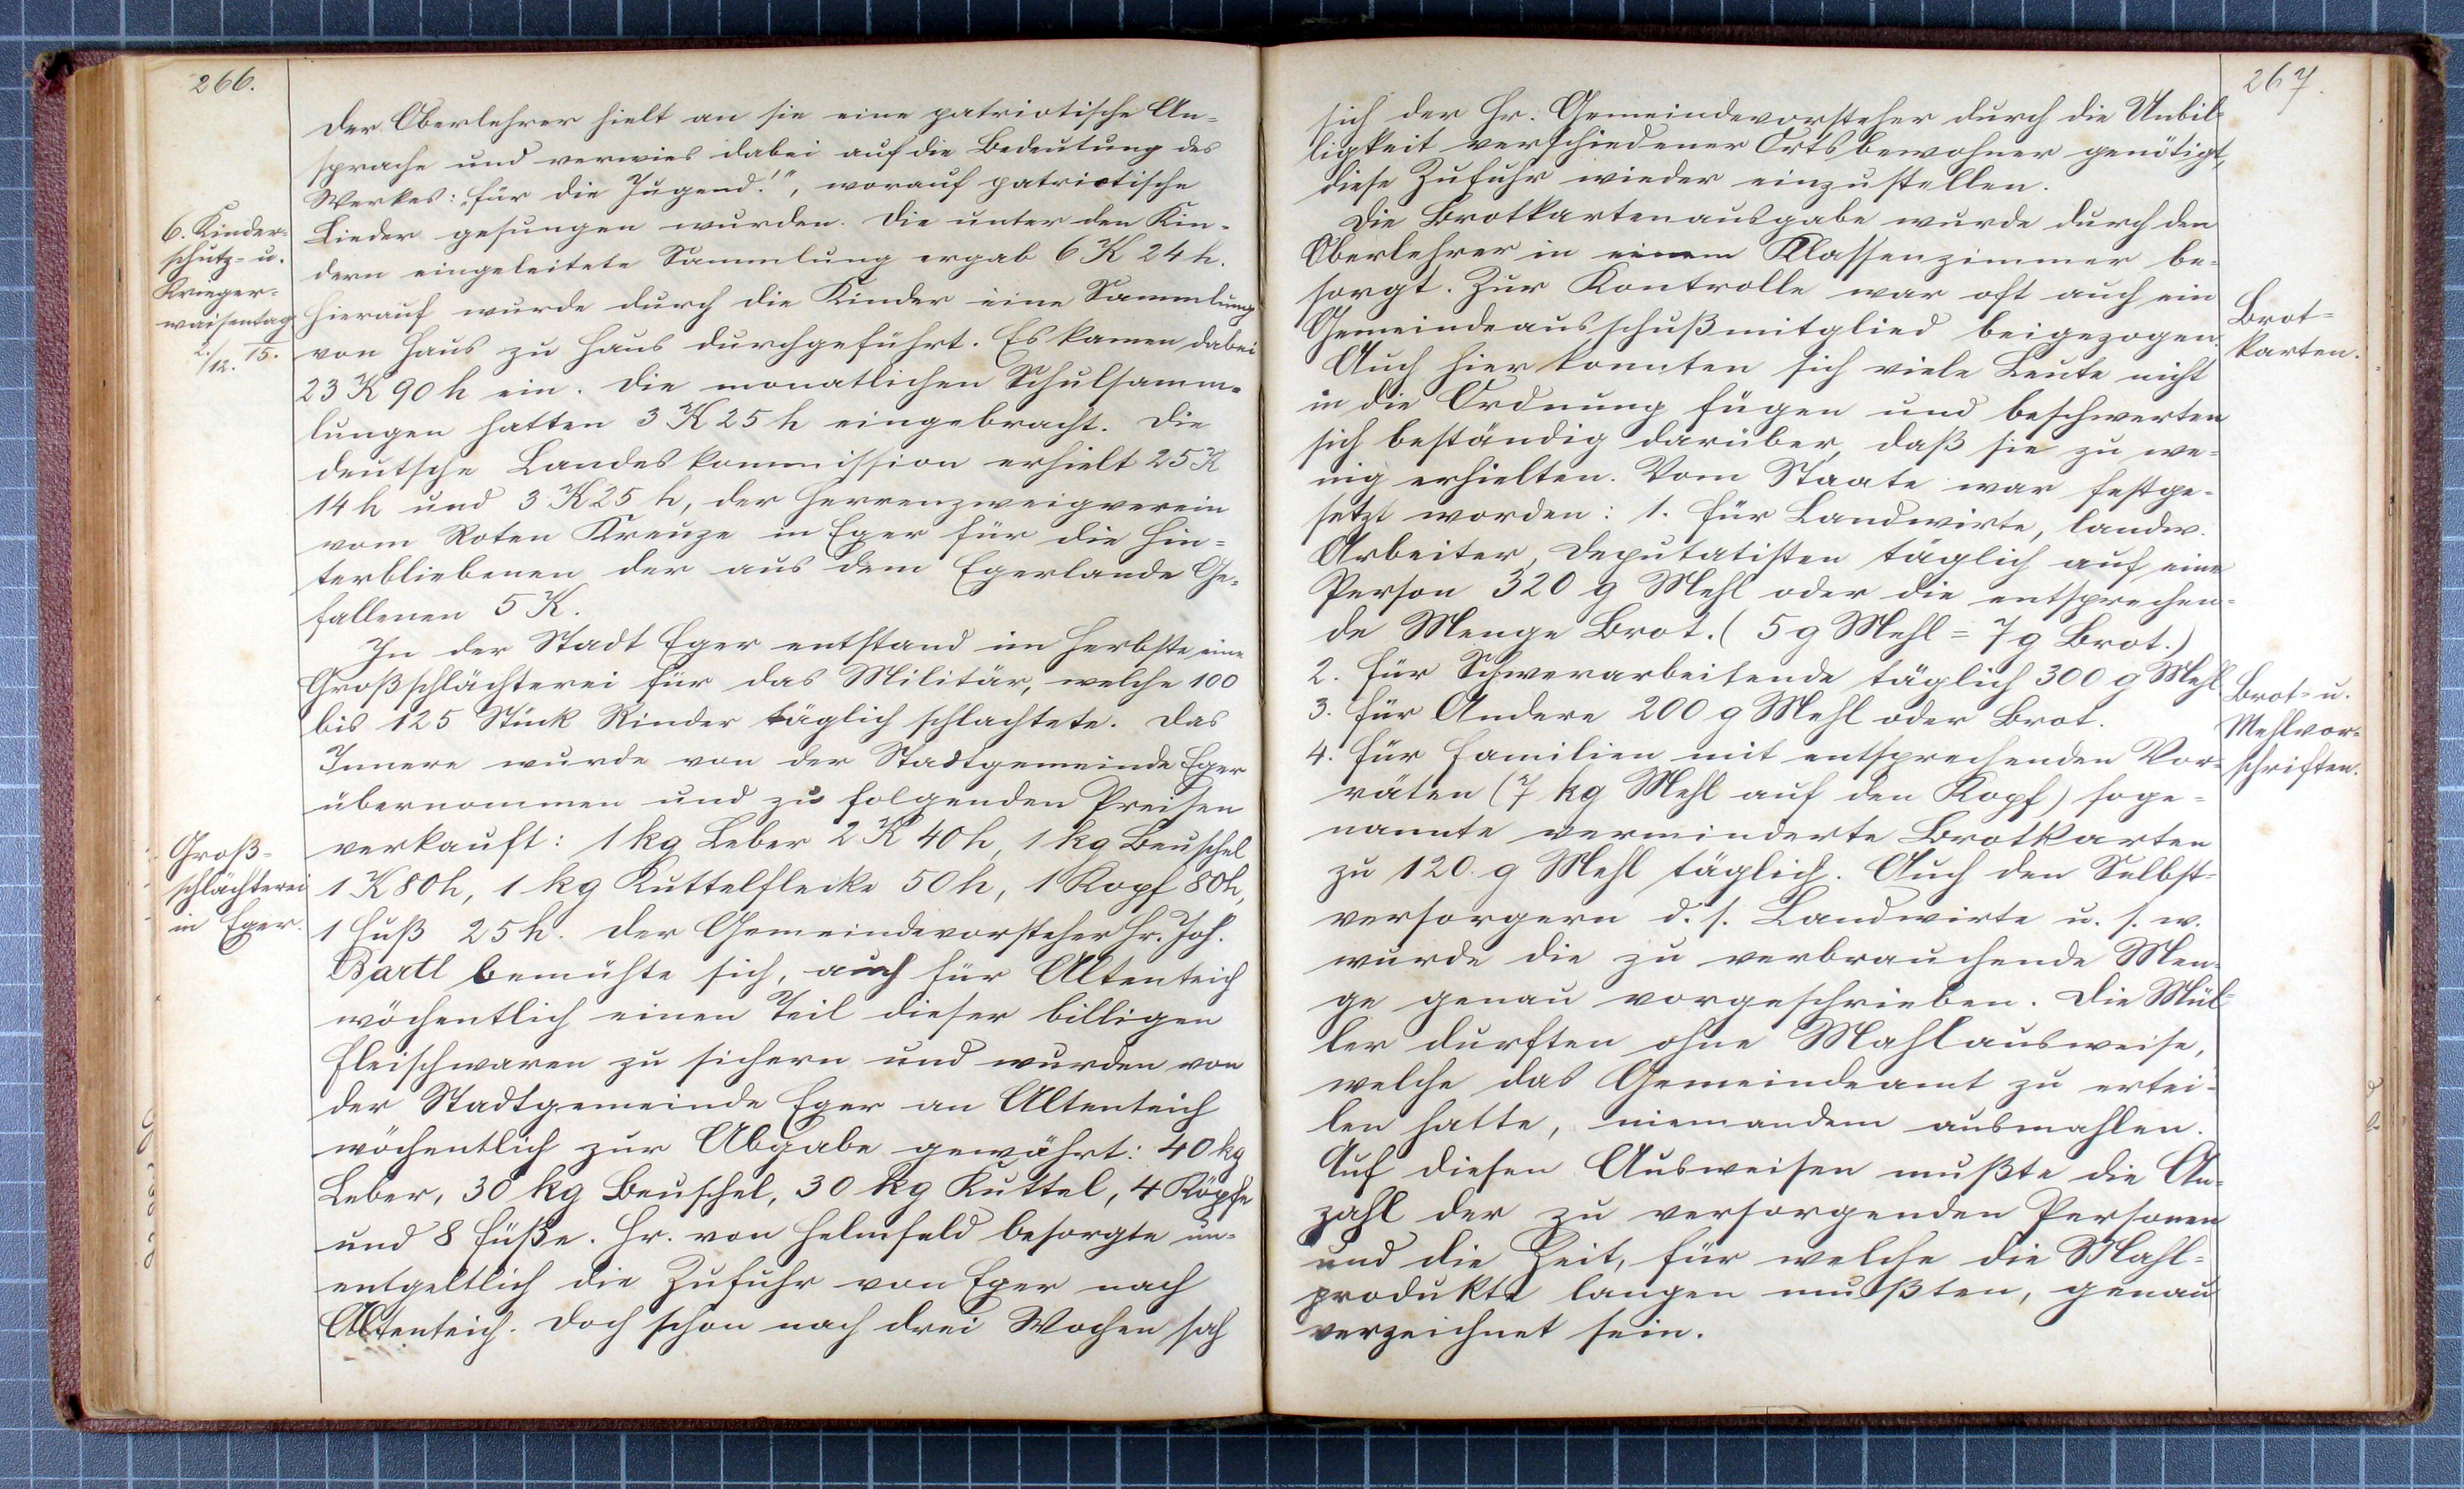 266.
Der Oberlehrer hielt an sie eine patriotische An-
sprache und verwies dabei auf die Bedeutung des
Werkes: „Für die Jugend!", worauf patriotische
Lieder gesungen wurden. Die unter den Kin-
dern eingeleitete Sammlung ergab 6 K 24 h.
Hierauf wurde durch die Kinder eine Sammlung
von Haus zu Haus durchgeführt. Es kamen dabei
23 K 90 h ein. Die monatlichen Schulsamm-
lungen hatten 3 K 25 h eingebracht. Die
deutsche Landeskommission erhielt 25 K
14 h und 3 K 25 h, der Herrenzweigverein
vom Roten Kreuze in Eger für die Hin-
terbliebenen der aus dem Egerlande Ge-
fallenen 5 K.
6. Kinder-
schutz- u.
Krieger-
waisentag
2./12. 15.
In der Stadt Eger entstand im Herbste eine
Großschlächterei für das Militär, welche 100
bis 125 Stück Rinder täglich schlachtete. Das
Innere wurde von der Stadtgemeinde Eger
übernommen und zu folgenden Preisen
verkauft: 1 kg Leber 2 K 40 h, 1 kg Beuschel
1 K 80 h, 1 kg Kuttelflecke 50 h, 1 Kopf 80 h,
1 Fuß 25 h. Der Gemeindevorsteher Hr. Joh.
Bartl bemühte sich, auch für Altenteich
wöchentlich einen Teil dieser billigen
Fleischwaren zu sichern und wurden von
der Stadtgemeinde Eger an Altenteich
wöchentlich zur Abgabe gewährt: 40 kg
Leber, 30 kg Beuschel, 30 kg Kuttel, 4 Köpfe
und 8 Füße. Hr. von Helmfeld besorgte un-
entgeltlich die Zufuhr von Eger nach
Altenteich. Doch schon nach drei Wochen sah
Groß-
schlächterei
in Eger.
267.
sich der Hr. Gemeindevorsteher durch die Unbil-
ligkeit verschiedener Ortsbewohner genötigt,
diese Zufuhr wieder einzustellen.
Die Brotkartenausgabe wurde durch den
Oberlehrer in einem Klassenzimmer be-
sorgt. Zur Kontrolle war oft auch ein
Gemeindeausschußmitglied beigezogen.
Auch hier konnten sich viele Leute nicht
in die Ordnung fügen und beschwerten
sich beständig darüber, daß sie zu we-
nig erhielten. Vom Staate war festge-
setzt worden: 1. Für Landwirte, landw.
Arbeiter, Deputatisten täglich auf eine
Person 320 g Mehl oder die entsprechen-
de Menge Brot. (5 g Mehl = 7 g Brot.)
2. Für Schwerarbeitende täglich 300 g Mehl
3. Für Andere 200 g Mehl oder Brot.
4. Für Familien mit entsprechenden Vor-
räten (7 kg Mehl auf den Kopf) soge-
nannte verminderte Brotkarten
zu 120 g Mehl täglich. Auch den Selbst-
versorgern d. s. Landwirte u. s. w.
wurde die zu verbrauchende Men-
ge genau vorgeschrieben. Die Mül-
ler durften ohne Mahlausweise,
welche das Gemeindeamt zu ertei-
len hatte, niemandem ausmahlen.
Auf diesen Ausweisen mußte die An-
zahl der zu versorgenden Personen
und die Zeit, für welche die Mahl-
produkte langen mußten, genau
verzeichnet sein.
Brot-
karten.
Brot- u.
Mehlvor-
schriften.